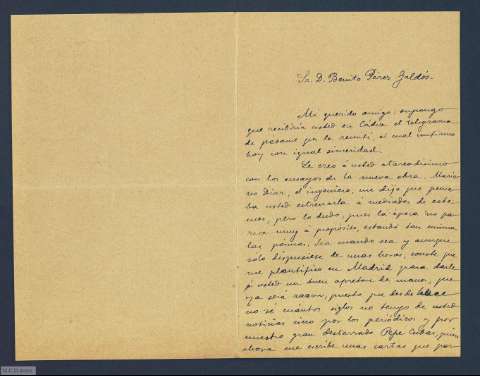 Sr. D. Benito Pérez Galdós.
Mi querido amigo: supongo
que recibiría usted en Cádiz el telegrama
de pésame que le remití, el cual confirmo
hoy con igual sinceridad.
Le creo á usted atareadísimo
con los ensayos de la nueva obra. Maria
no Díaz, el ingeniero, me dijo que pensa
ba usted estrenarla á mediados de este
mes, pero lo dudo, pues la época no pa
rece muy á propósito, estando tan encima
las páscuas. Sea cuando sea y aunque
solo dispusiese de unas horas, conste que
me plantifico en Madrid para darle
á usted un buen apretón de manos, que
ya será razón, puesto que desde hace
no sé cuántos siglos no tengo de usted
noticias sino por los periódicos y por
nuestro gran desterrado Pepe Cubas, quien
ahora me escribe unas cartas que por